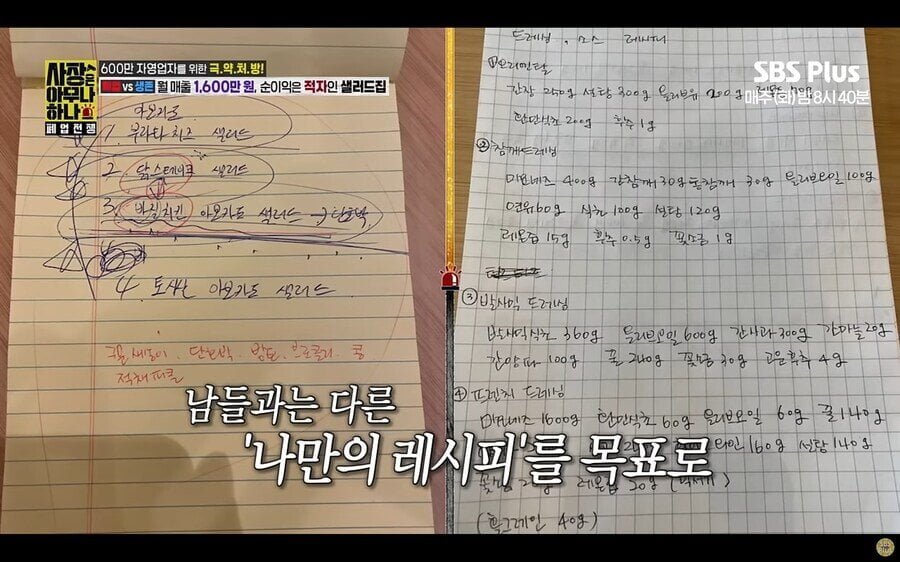 사장은 아무나 하나
폐업전쟁
600만 자영업자를 위한 극.약.처.방!
폐업 vs 생존 월 매출 1,600만 원, 순이익은 적자인 샐러드집
SBS Plus
매주 (화) 밤 8시 40분
아보카도
1. 부라타 치즈 샐러드
2. 닭스테이크 샐러드
3. 바질치킨 아보카도 샐러드 →
4. 아보카도 샐러드
단호박 . 브로콜리 . 콩
적채피클
드레싱 , 소스 레시피
① 오리엔탈
간장 250g 설탕 300g 올리브유
200g 후추 1g
② 참깨드레싱
마요네즈 400g 간참깨 30g 통참깨 30g 올리브오일 100g
연유 60g 식초 100g 설탕 120g
레몬즙 15g 후추 0.5g 꽃소금 1g
③ 발사믹 드레싱
발사믹식초 360g 올리브오일 600g 간사과 300g 간마늘 20g
간양파 100g 꿀 240g 꽃소금 30g 고운후추 4g
④ 프렌치 드레싱
마요네즈 1600g 60g 올리브오일 60g 꿀 140g
160g 설탕 140g
레몬즙 20g
(홀그레인 40g)
남들과는 다른
'나만의 레시피'를 목표로